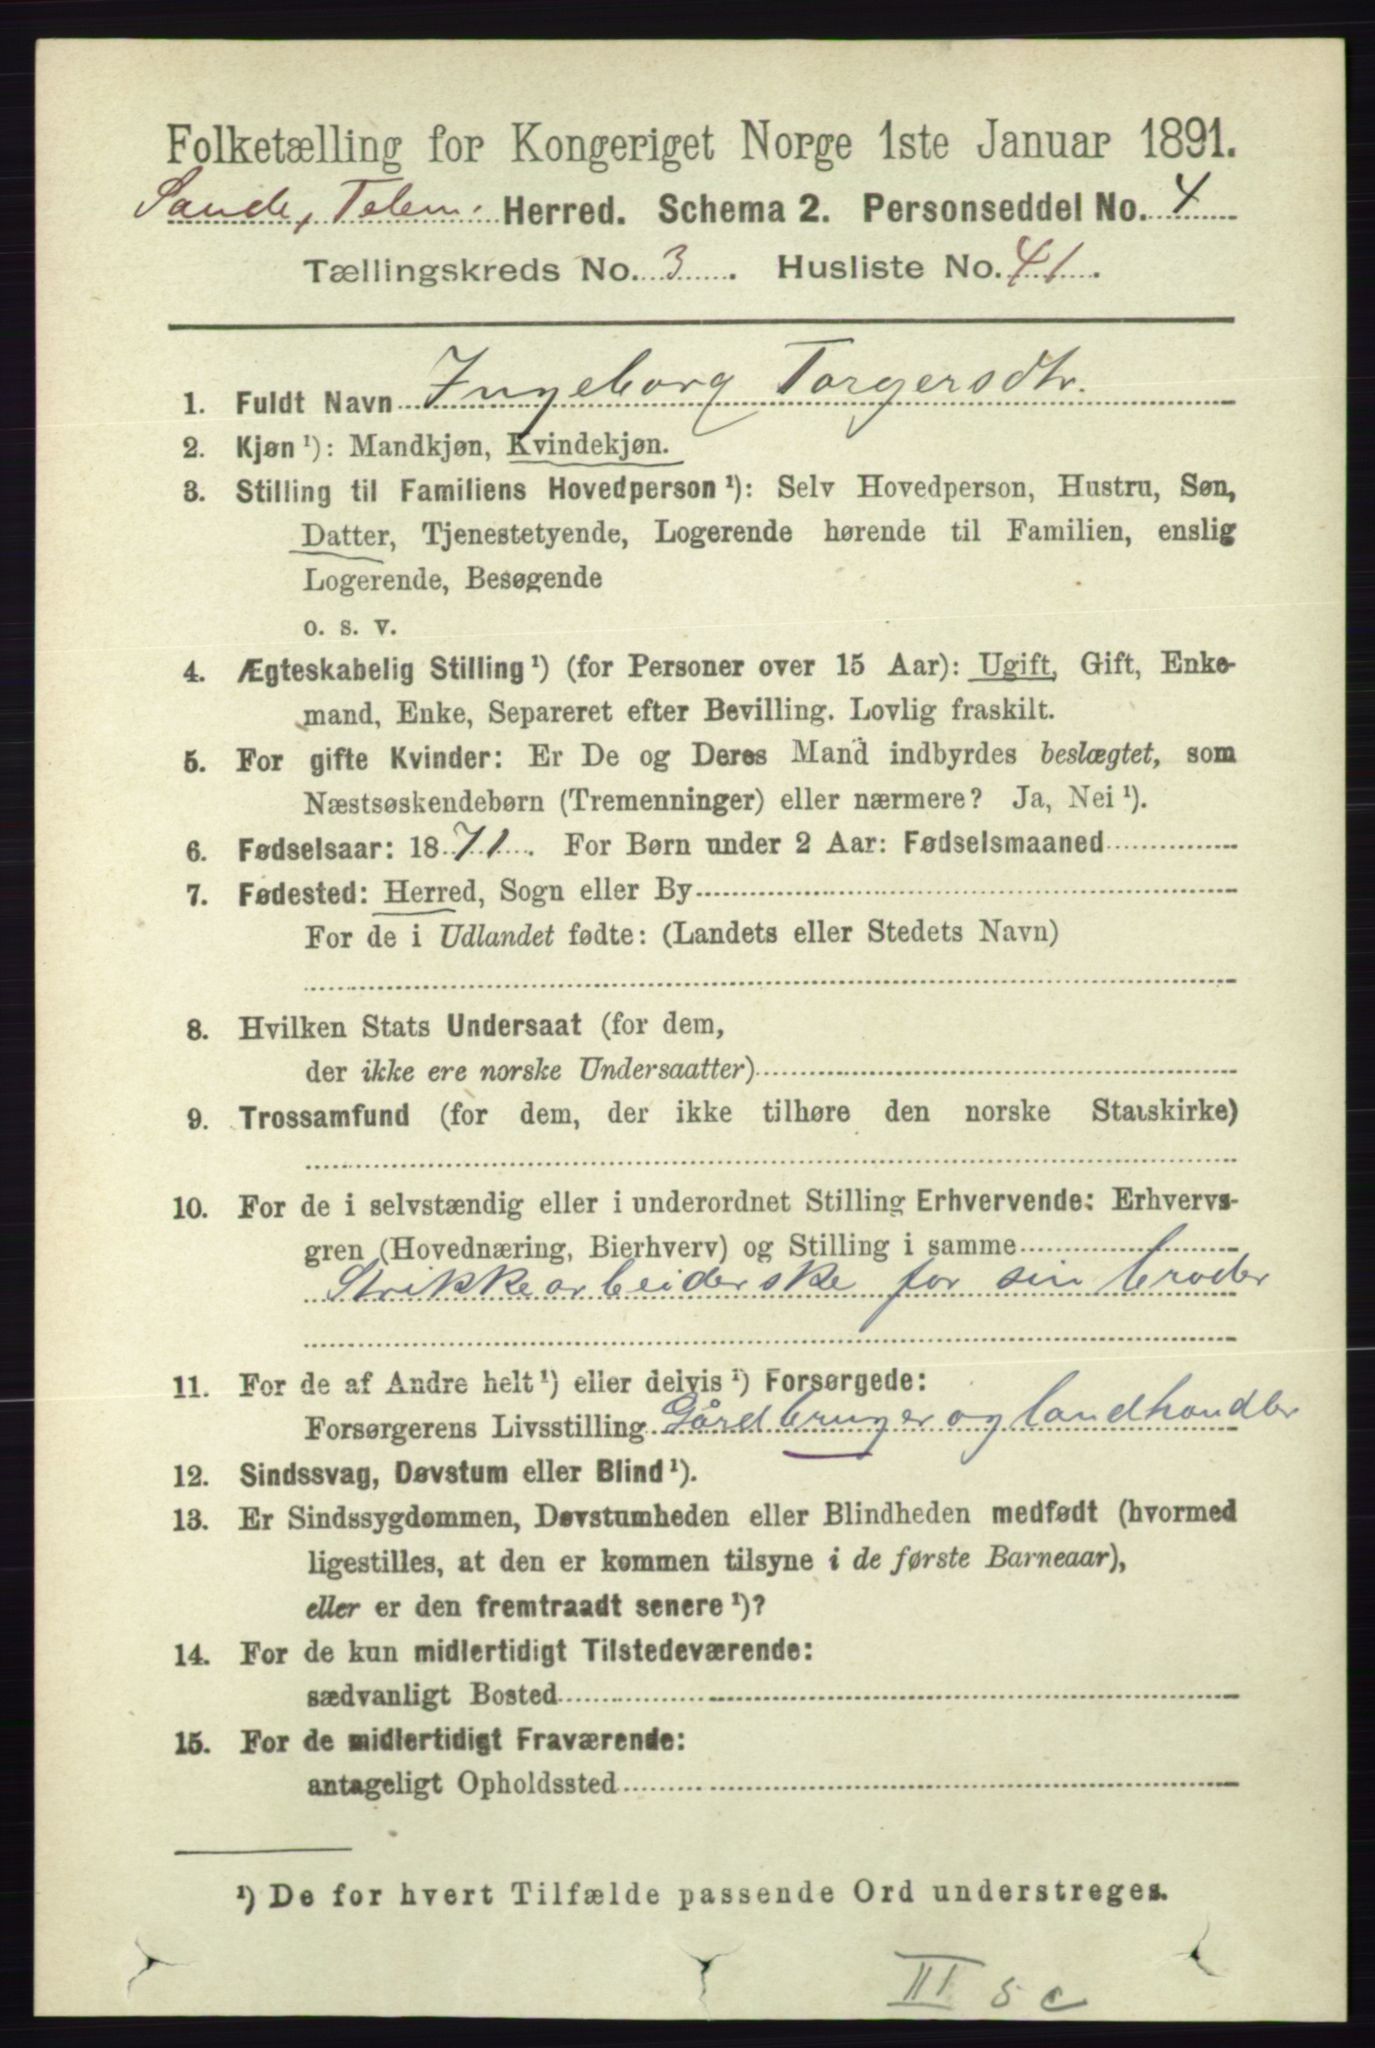 Folketælling for Kongeriget Norge 1ste Januar 1891.
Saude, Telem. Herred. Schema 2. Personseddel No. 4
Tællingskreds No. 3. Husliste No. 41.
1. Fuldt Navn Ingeborg Torgersdtr.
2. Kjøn ¹): Mandkjøn, Kvindekjøn.
3. Stilling til Familiens Hovedperson ¹): Selv Hovedperson, Hustru, Søn,
Datter, Tjenestetyende, Logerende hørende til Familien, enslig
Logerende, Besøgende
o. s. v.
4. Ægteskabelig Stilling ¹) (for Personer over 15 Aar): Ugift, Gift, Enke-
mand, Enke, Separeret efter Bevilling. Lovlig fraskilt.
5. For gifte Kvinder: Er De og Deres Mand indbyrdes beslægtet, som
Næstsøskendebørn (Tremenninger) eller nærmere? Ja, Nei ¹).
6. Fødselsaar: 1871. For Børn under 2 Aar: Fødselsmaaned
7. Fødested: Herred, Sogn eller By
For de i Udlandet fødte: (Landets eller Stedets Navn)
8. Hvilken Stats Undersaat (for dem,
der ikke ere norske Undersaatter)
9. Trossamfund (for dem, der ikke tilhøre den norske Statskirke)
10. For de i selvstændig eller i underordnet Stilling Erhvervende: Erhvervs-
gren (Hovednæring, Bierhverv) og Stilling i samme
Strikkearbeiderske for sin broder
11. For de af Andre helt ¹) eller delvis ¹) Forsørgede:
Forsørgerens Livsstilling Gårdbruger og landhandler
12. Sindssvag, Døvstum eller Blind ¹).
13. Er Sindssygdommen, Døvstumheden eller Blindheden medfødt (hvormed
ligestilles, at den er kommen tilsyne i de første Barneaar),
eller er den fremtraadt senere ¹)?
14. For de kun midlertidigt Tilstedeværende:
sædvanligt Bosted
15. For de midlertidigt Fraværende:
antageligt Opholdssted
¹) De for hvert Tilfælde passende Ord understreges.
III 5 c